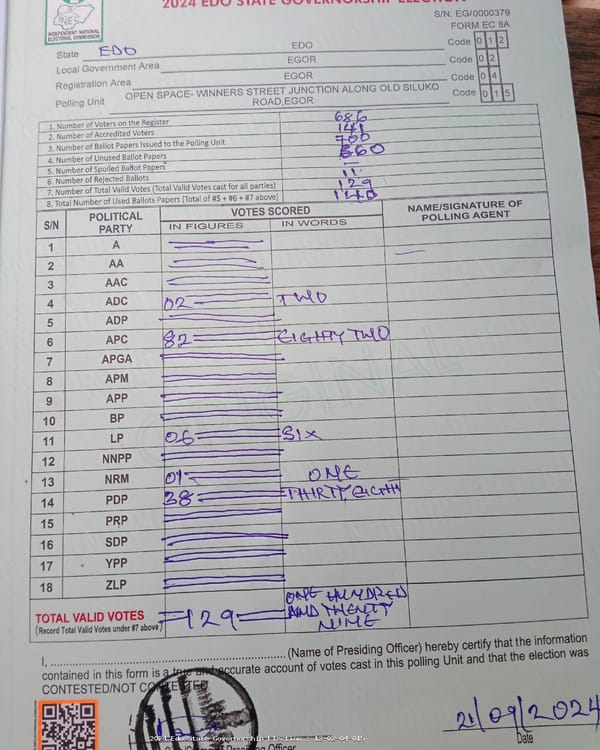 2024 EDO STATE GOVERNORSHIP ELECTION
INEC
INDEPENDENT NATIONAL ELECTORAL COMMISSION
S/N. EG/0000379
FORM EC 8A
State EDO EDO Code 0 1 2
Local Government Area EGOR Code 0 2
Registration Area EGOR Code 0 4
Polling Unit OPEN SPACE- WINNERS STREET JUNCTION ALONG OLD SILUKO ROAD,EGOR Code 0 1 5
1. Number of Voters on the Register 686
2. Number of Accredited Voters 141
3. Number of Ballot Papers Issued to the Polling Unit 700
4. Number of Unused Ballot Papers 560
5. Number of Spoiled Ballot Papers —
6. Number of Rejected Ballots 11
7. Number of Total Valid Votes (Total Valid Votes cast for all parties) 129
8. Total Number of Used Ballots Papers (Total of #5 + #6 + #7 above) 140
S/N POLITICAL PARTY VOTES SCORED NAME/SIGNATURE OF POLLING AGENT
IN FIGURES IN WORDS
1 A
2 AA
3 AAC
4 ADC 02 TWO
5 ADP
6 APC 82 EIGHTY TWO
7 APGA
8 APM
9 APP
10 BP
11 LP 06 SIX
12 NNPP
13 NRM 01 ONE
14 PDP 38 THIRTY EIGHTY
15 PRP
16 SDP
17 YPP
18 ZLP
TOTAL VALID VOTES 129 ONE HUNDRED AND TWENTY NINE
(Record Total Valid Votes under #7 above)
I, ............................................................ (Name of Presiding Officer) hereby certify that the information
contained in this form is a true and accurate account of votes cast in this polling Unit and that the election was
CONTESTED/NOT CONTESTED
21/09/2024
Date
2024 Edo State Governorship Election - 12-02-04-015
Officer